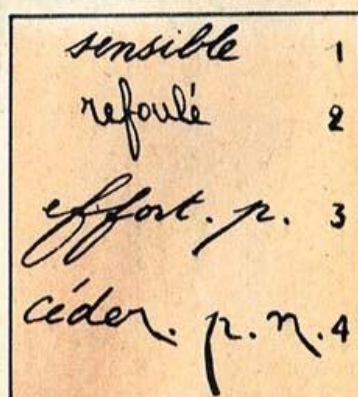 sensible 1
refoulé 2
effort. p. 3
céder. p. n. 4